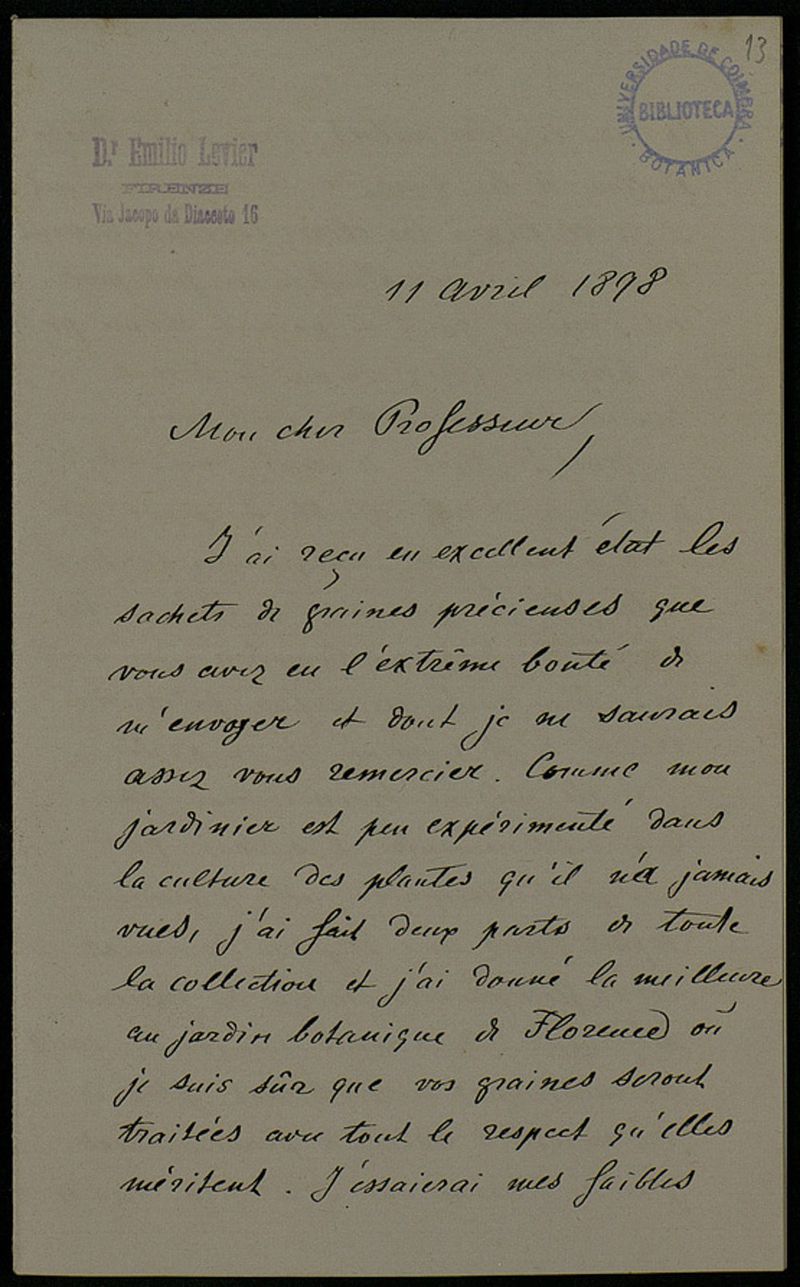 13
UNIVERSIDADE DE COIMBRA
BIBLIOTECA
BOTANICA
Dr Emilio Levier
FIRENZE
Via Jacopo da Diacceto 16
11 avril 1898
Mon cher Professeur,
J'ai reçu en excellent état les
sachets de graines précieuses que
vous avez eu l'extrême bonté de
m'envoyer et dont je ne saurais
assez vous remercier. Comme mon
jardinier est peu expérimenté dans
la culture des plantes qu'il n'a jamais
vues, j'ai fait deux parts de toute
la collection et j'ai donné la meilleure
au jardin botanique de Florence où
je suis sûr que vos graines seront
traitées avec tout le respect qu'elles
méritent. J'éssaierai mes faibles